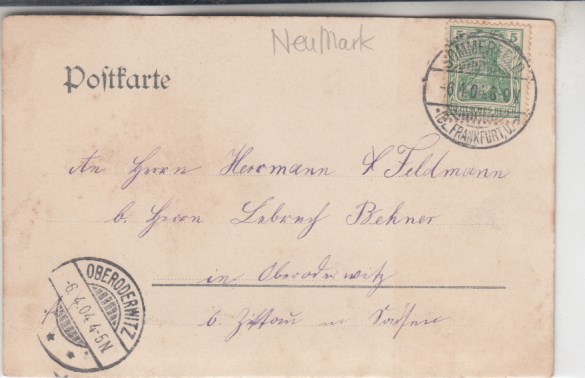 NeuMark
Postkarte
5 5
SOMMERFELD
6.4.04.8-9V
*(BZ.FRANKFURT,O.)*
An Herrn Herrmann Feldmann
b. Herrn Lebrech Behner
in Oberoderwitz
b. Zittau in Sachsen
OBERODERWITZ
-6.4.04.4-5N
* *